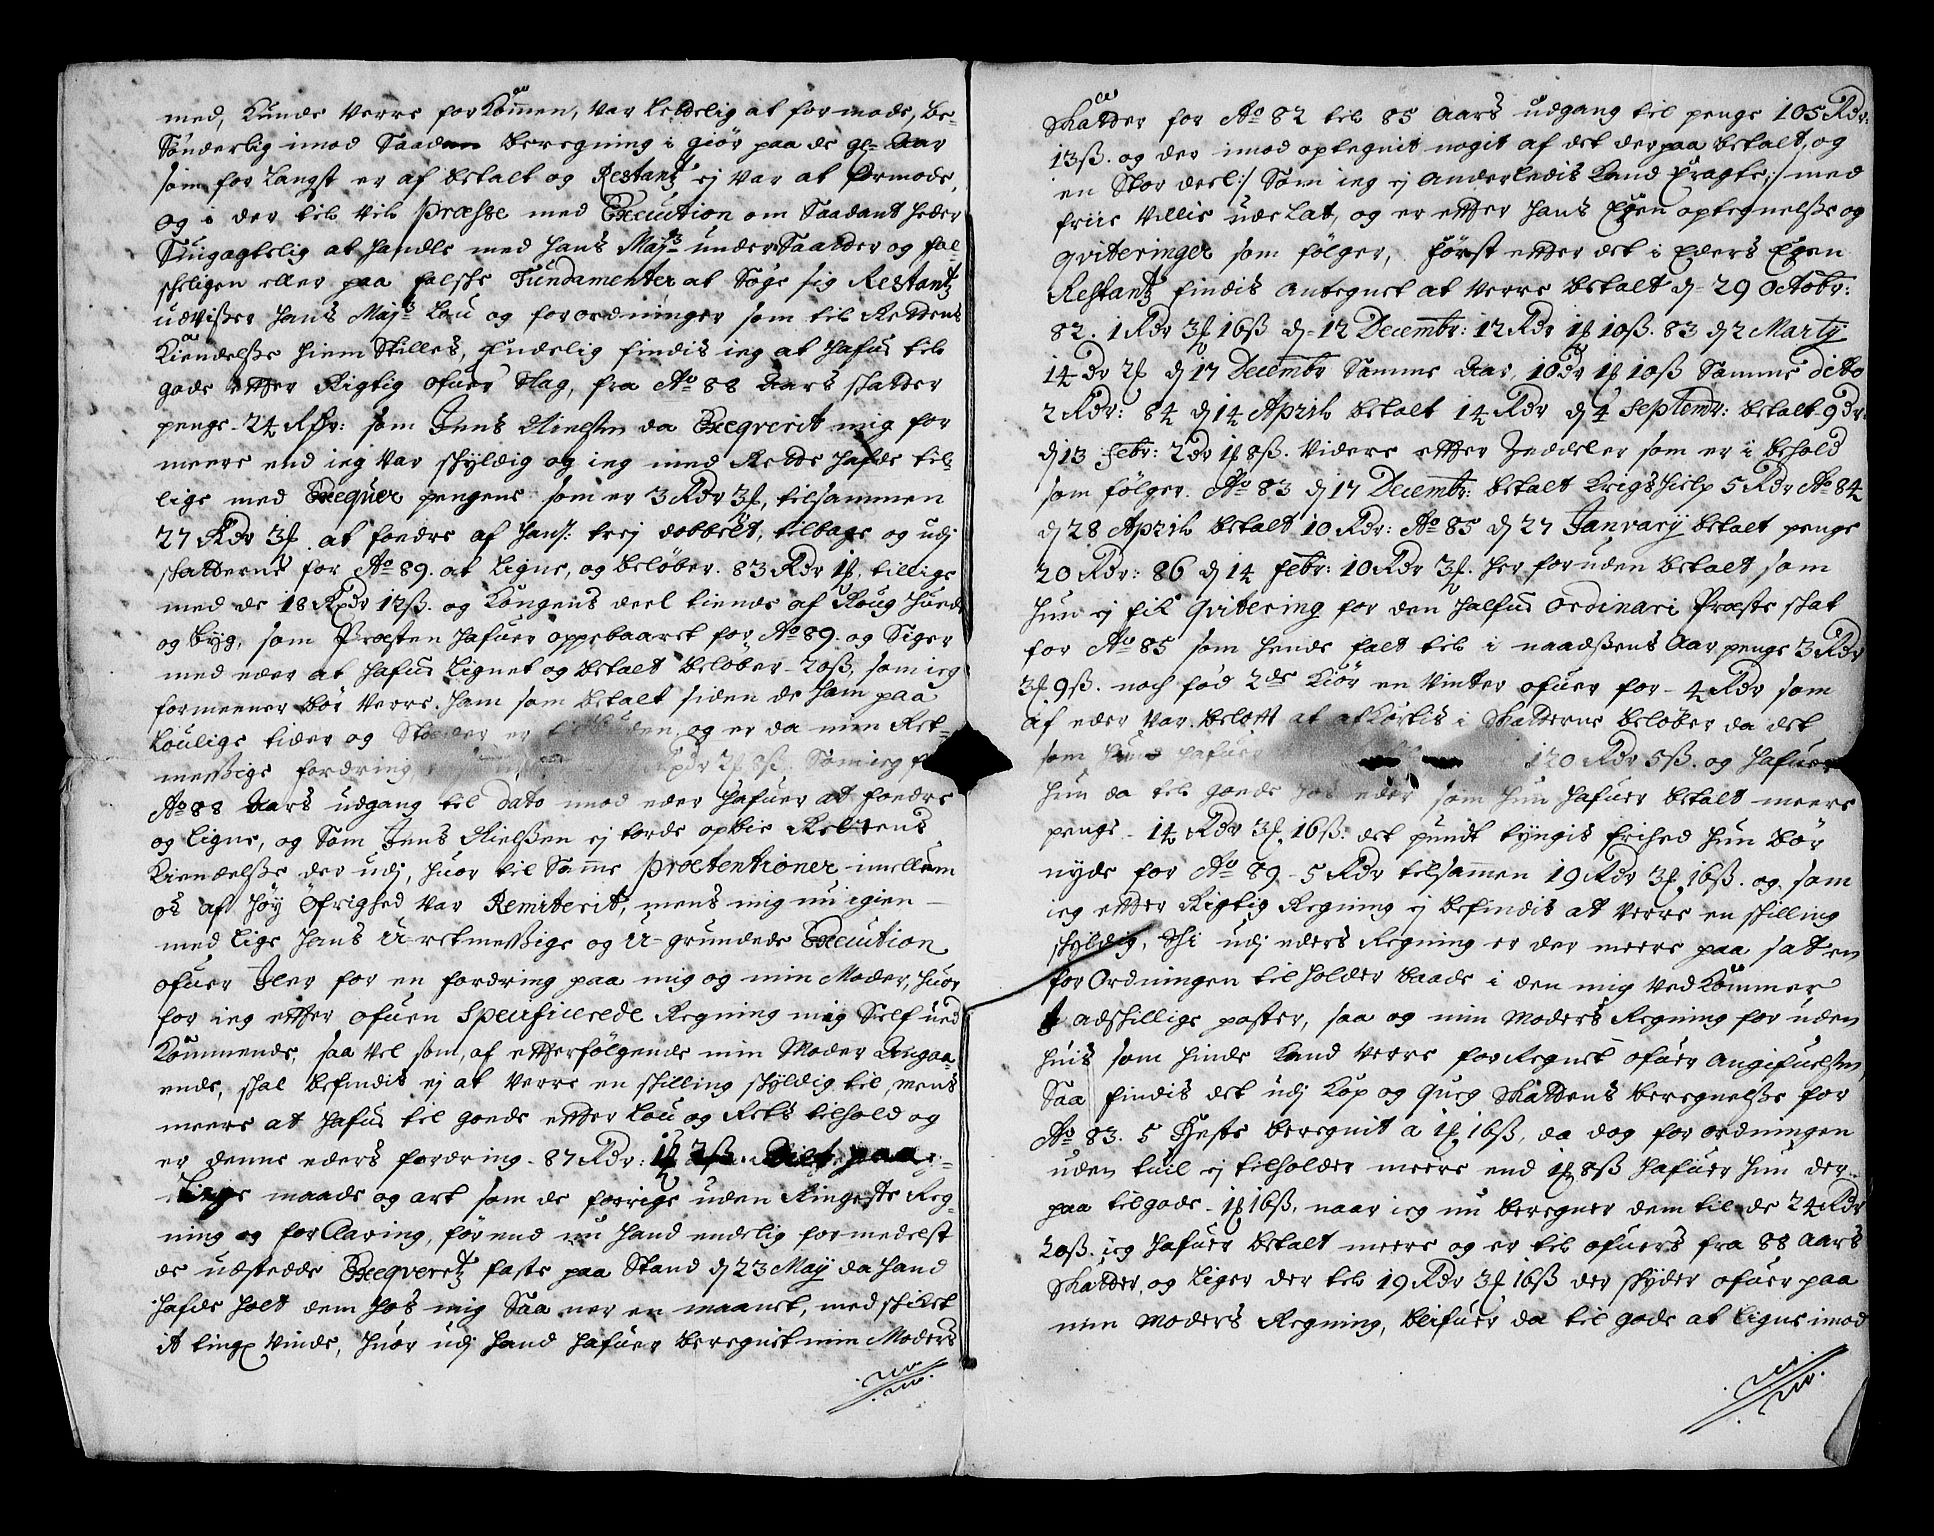 med, Kunde Verre forKommen, Var Ledelig at formode, be-
Sönderlig imod Saadan beregning i giör paa de gl: Aar
som for Langst er af betalt og Restantz ej Var at formode,
og i der til Vil Præsse med Execution om Saadant heder
Siugagtelig at handle med hans Maj:ts under Saatter og fal-
skeligen eller paa falske Fundamenter at Söge sig Restantz
udvisser hans Maj:ts Lou og forordninger som til Rettens
Kiendelsse hiem Stilles, Endelig findis ieg at hafue til
gode etter Rigtig ofuer Slag, fra Ao 88 Aars skatter
penge - 24 Rdr: som Jens Nielsen da Exeqverit mig for
meere end ieg Var skyldig og ieg med Rette hafde til-
lige med Exequer pengene som er 3 Rdr 3 ƒ, tilsammen
27 Rdr 3 ƒ. at foedre af hans: trej dobbelt, tilbage og udj
skatterne for Ao 89. at Ligne, og beløber. 83 Rdr 1ƒ, tillige
med de 18 Rdr 12ß. og Kongens deel tiende af Roug huede
og byg, som Præsten hafuer oppebaaret for Ao 89. og Siger
med eder at hafue Lignet og betalt beløber - 20ß, som ieg
formeener bör Verre. ham som betalt siden de ham paa
Loulige tider og og er da min Ret-
messige fordring 2ƒ 8ß. Som ieg
Ao 88 Aars udgang til dato imod eder hafuer at foedre
og Ligne, og Som Jens Nielssen ej torde opbie Rettens
Kiendelsse der udj, huor til Samme Prætentioner imellum
os af höy Öfrighed var Remiterit, mens mig nu igien -
med Lige hans U-retmessige og U-grundede Execution
ofuer Iler for en fordring paa mig og min Moder, huor
for ieg etter ofuen Specificerede Regning mig Self ued
Kommende, saa vel som, af etterfölgende min Moder Angaa-
ende, skal befindis ej at verre en skilling skyldig til, mens
meere at hafue til goede etter Lou og Rets tilhold og
er denne eders fordring - 87 Rdr: 1ƒ 2ß paa
Lige maade og art som de forrige uden Ringeste Reg-
ning og forClaring, förend nu hand endelig formedelst
de udstedde Exeqveretz faste paa Stand d 23 Maij da hand
hafde holt dem hos mig Saa ner en maanet, med skikket
it tingx Vinde, huor udj hand hafuer beregnet min Moders
Skatter for Ao 82 til 85 Aars udgang til penge 105 Rdr:
13ß. og der imod optegnit nogit af det der paa betalt, og
en Stor deel :/ Som ieg ej anderledis Kand Eragte :/ med
friie Villie ude Lat, og er etter hans Egen optegnelsse og
qviteringer som fölger, först etter det i Eders Egen
Restantz findis antegnet at Verre betalt d - 29 Octobr:
82. 1 Rdr 3ƒ 16ß d - 12 Decembr: 12 Rdr 1ƒ 10ß. 83 d 2 Martij
14 dr 2ƒ d 17 Decembr Samme Aar, 10 dr 1ƒ 10ß Samme dito
2 Rdr: 84 d 14 April betalt 14 Rdr d 4 Septembr: betalt 9 dr:
d 13 febr: 2 dr 1ƒ 8ß. Videre etter Zeddeler som er i behold
som fölger. Ao 83 d 17 Decembr: betalt KrigsHielp 5 Rdr Ao 84
d 28 April betalt 10 Rdr: Ao 85 d 27 Janvarij betalt penge
20 Rdr: 86 d 14 febr: 10 Rdr 3ƒ. her foruden betalt som
hun ej fik qvitering for den halfue ordinari Præste skat
for Ao 85 som hende falt til i naadsens Aar penge 3 Rdr
3ƒ 9ß. noch föd 2de Kiör en Vinter ofuer for - 4 Rdr som
af eder Var belofft at afkortis i Skatterne beløber da det
som hund hafuer 120 Rdr 5ß. og hafuer
hun da til goede hos eder som hun hafuer betalt meere
penge - 14 Rdr 3ƒ 16ß. det pundt tyngis frihed hun bör
nyde for Ao 89 - 5 Rdr tilsammen 19 Rdr 3ƒ 16ß. og som
ieg etter Rigtig Regning ej befindis at Verre en skilling
skyldig, Thi udj eders Regning er der meere paa sat en
forOrdningen til holder baade i den mig VedKommer
adskillige poster, saa og min Moders Regning foruden
huis som hinde kand verre forRegnet ofuer Angifuelsen,
Saa findis det udj Kop og Queg Skattens beregnelsse for
Ao 83. 5 Heste beregnit a 1ƒ 16ß, da dog forordningen
uden tuil ej tilholder meere end 1ƒ 8ß hafuer hun der
paa tilgode - 1ƒ 16ß, naar ieg nu beregner dem til de 24 Rdr
20ß. ieg hafuer betalt meere og er til ofuers fra 88 Aars
Skatter, og Liger der til 19 Rdr 3ƒ 16ß der skyder ofuer paa
min Moders Regning, blifuer da til gode at Ligne imod